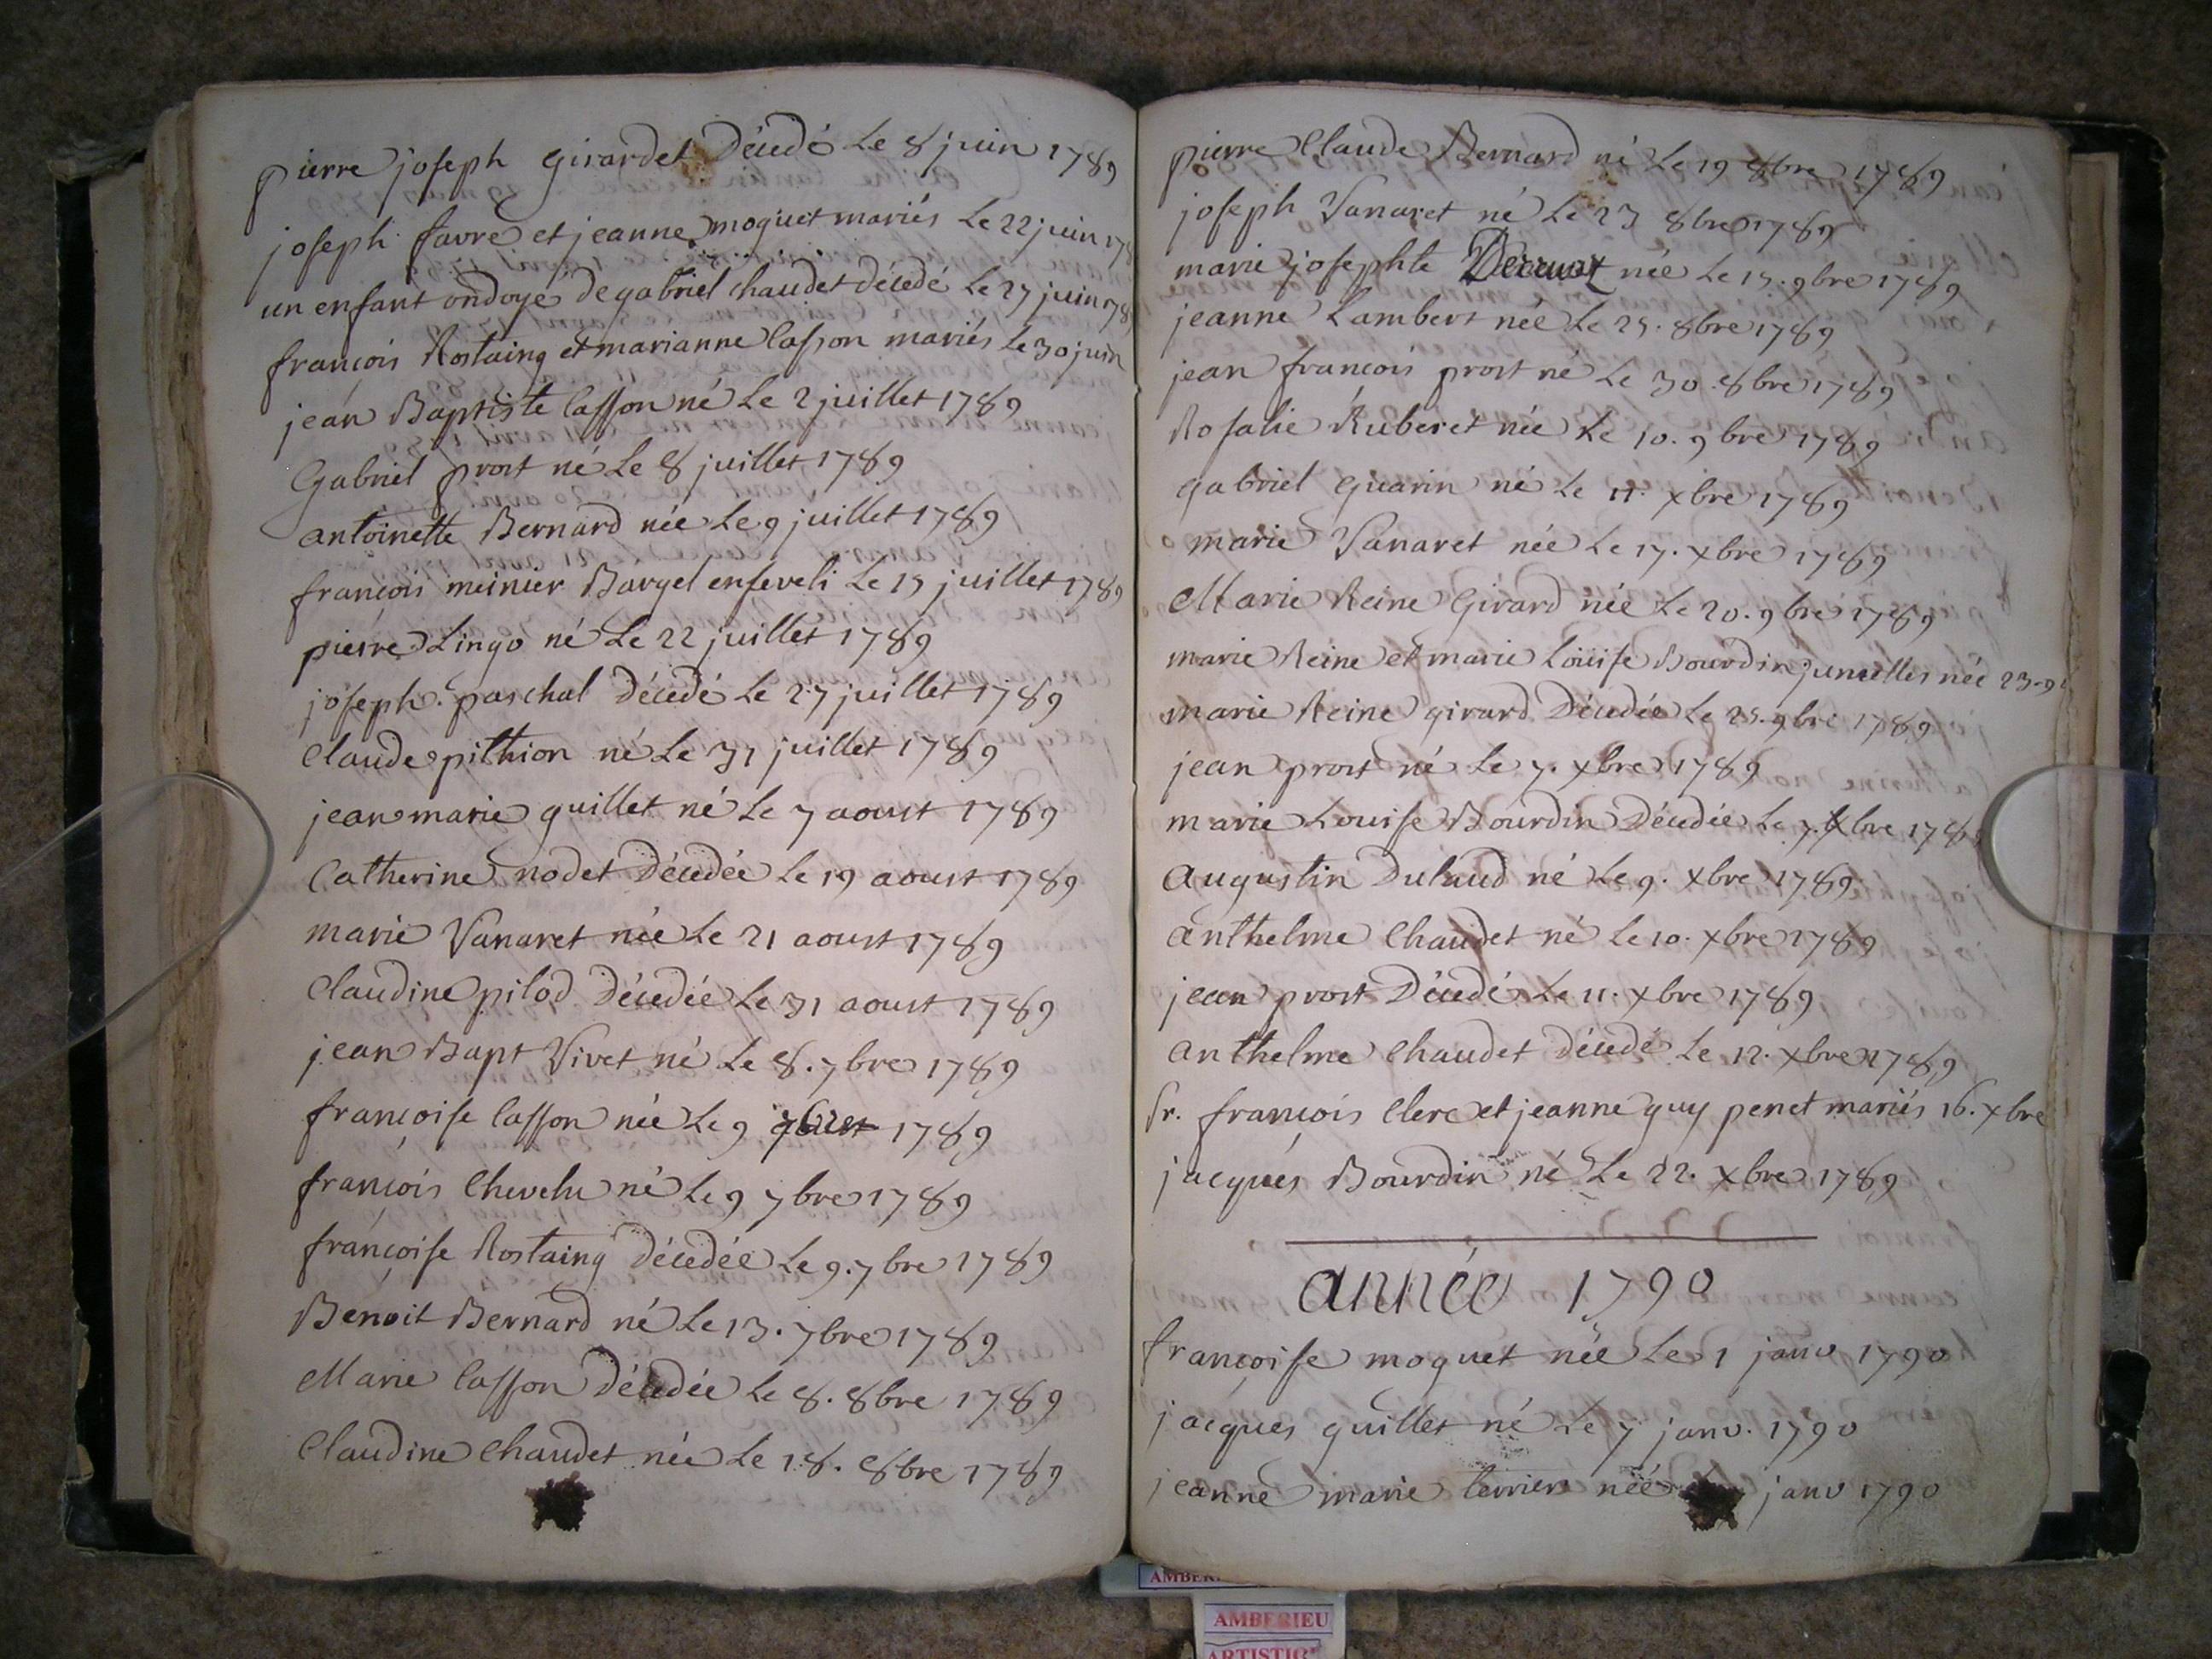 pierre joseph girardet Décédé Le 8 juin 1789
joseph favre et jeanne moquet mariés Le 22 juin 178
un enfant ondoyé de gabriel chaudet décedé Le 27 juin 178
françois Rostaing et marianne Casson mariés Le 30 juin
jean Baptiste Casson né Le 2 juillet 1789
Gabriel prost né Le 8 juillet 1789
antoinette Bernard née Le 9 juillet 1789
françois meinier Bargel enseveli Le 15 juillet 1789
pierre Lingo né Le 22 juillet 1789
joseph paschal décedé Le 27 juillet 1789
Claude pithion né Le 31 juillet 1789
jean marie guillet né Le 7 aoust 1789
Catherine nodet Décedée Le 19 aoust 1789
marie Vanaret née Le 21 aoust 1789
Claudine pilod Décedée Le 31 aoust 1789
jean Bapt Vivet né Le 8. 7bre 1789
françoise Casson née Le 9 1789
françois Chevelu né Le 9 7bre 1789
françoise Rostaing décedée Le 9. 7bre 1789
Benoit Bernard né Le 13. 7bre 1789
Marie Casson Décedée Le 8. 8bre 1789
Claudine Chaudet née Le 18. 8bre 1789
pierre Claude Bernard né Le 19 8bre 1789
joseph Vanaret né Le 23 8bre 1789
marie josephte née Le 15. 9bre 1789
jeanne Lambert née Le 25. 8bre 1789
jean françois prost né Le 30. 8bre 1789
Rosalie Ruberet née Le 10. 9bre 1789
gabriel guarin né Le 11. xbre 1789
marie Vanaret née Le 17. xbre 1789
Marie Reine Girard née Le 20. 9bre 1789
marie Reine et marie Louise Bourdin jumelles née 23. 9b
marie Reine girard Décedée Le 25. 9bre 1789
jean prost né Le 7. xbre 1789
marie Louise Bourdin Décedée Le 7. xbre 1789
Augustin Dulaud né Le 9. xbre 1789
anthelme Chaudet né Le 10. xbre 1789
jean prost Décedé Le 11. xbre 1789
anthelme Chaudet décedé Le 12. xbre 1789
Sr. françois Clerc et jeanne guy penet mariés 16. xbre
jacques Bourdin né Le 22. xbre 1789
année 1790
françoise moquet née Le 1 janv 1790
jacques guillet né Le 7 janv. 1790
jeanne marie terrier née janv 1790
AMBER
AMBERIEU
ARTISTIQ